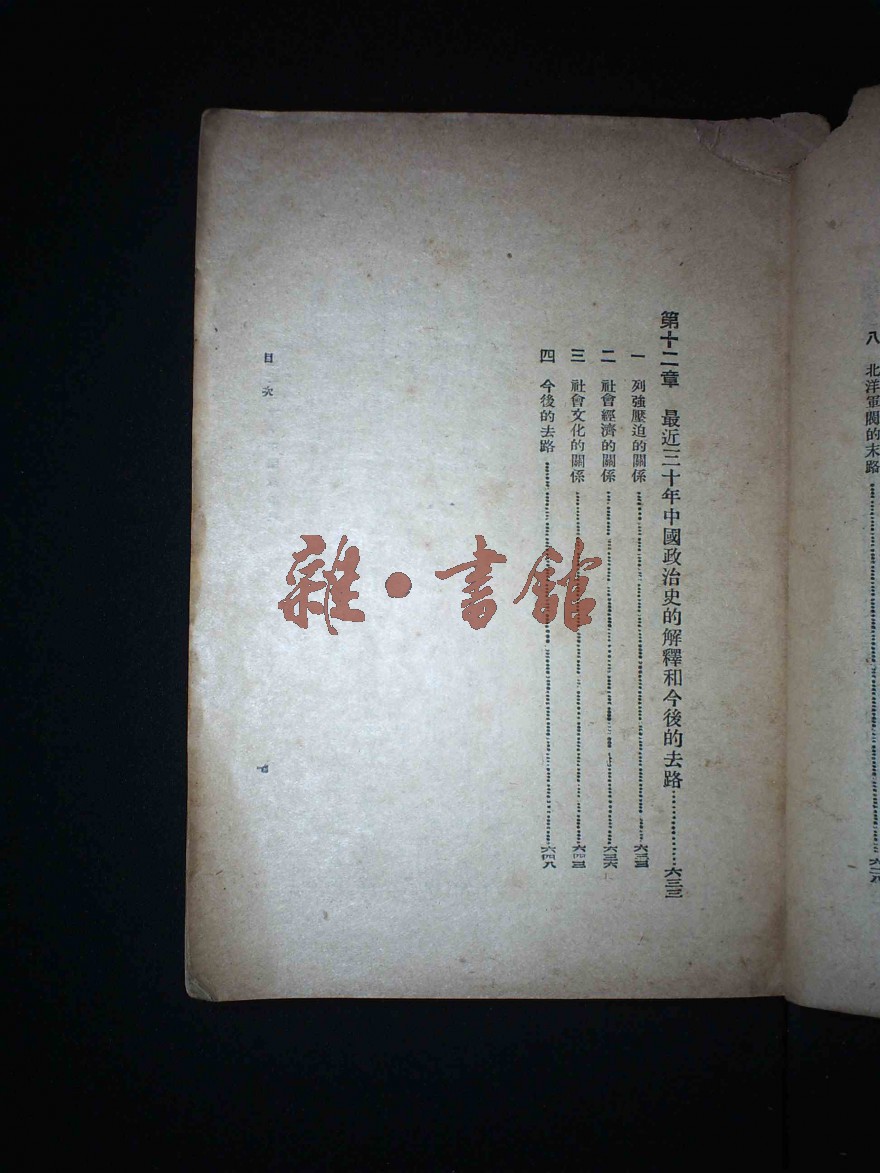 八 北洋軍閥的末路……六二八
第十二章 最近三十年中國政治史的解釋和今後的去路……六三三
一 列強壓迫的關係……六三三
二 社會經濟的關係……六三六
三 社會文化的關係……六四三
四 今後的去路……六四八
目次
雜·書館